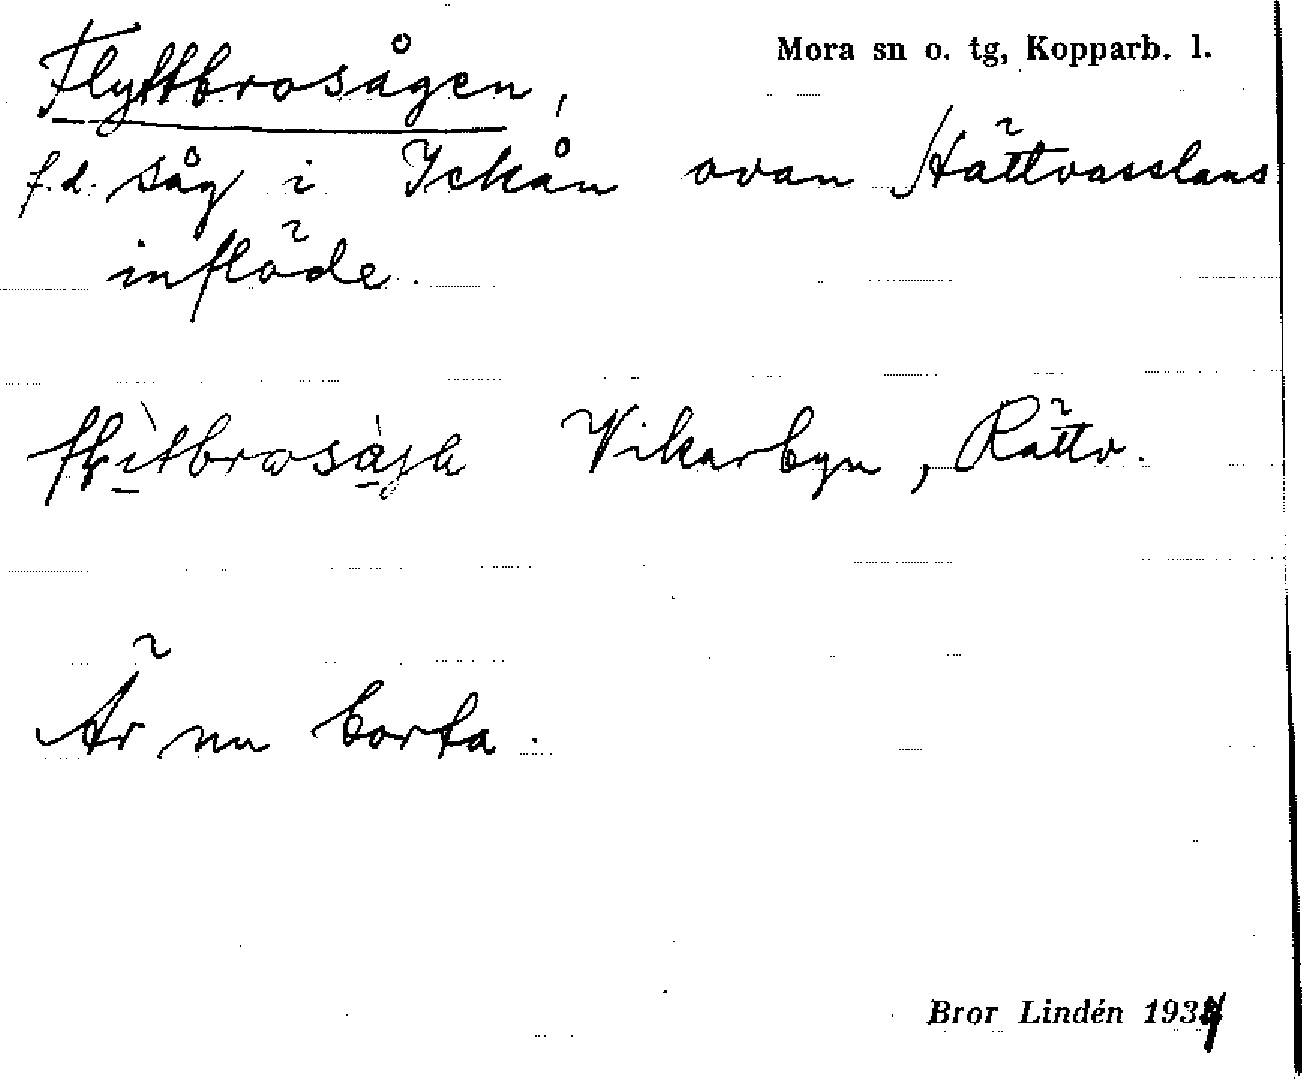 Mora sn o. tg, Kopparb. l.
Flyttbrosågen,
f.d. såg i Ickån ovan Hättvasslans
inflöde.
Vikarbyn, Rättv.
Är nu borta.
Bror Lindén 1934